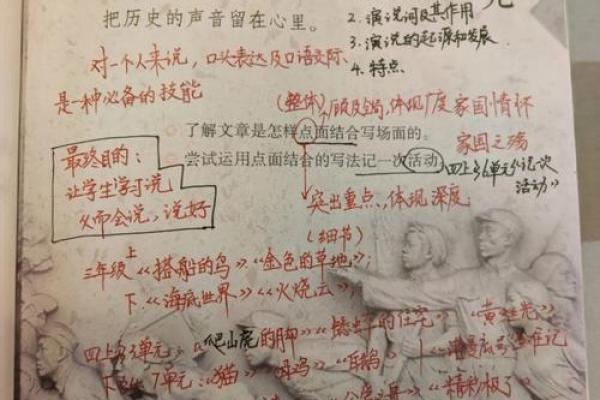 把历史的声音留在心里。
2. 演说词及其作用
3. 演说的起源和发展
4. 特点、
对一个人来说，口头表达及口语交际、
是一种必备的技能
（整体），顾及全局，体现广度 家国情怀
了解文章是怎样点面结合写场面的。
家国之殇
尝试运用点面结合的写法记一次活动。
四上 6单元《记一次活动》
最终目的：
让学生学习说
从而会说，说好
突出重点、体现深度
（细节）
三年级 上《搭船的鸟》《金色的草地》；
下：《海底世界》《火烧云》；
四上 3单元：《爬山虎的脚》《蟋蟀的住宅》
下 7单元：《猫》《母鸡》《白鹅》
《精彩极了》